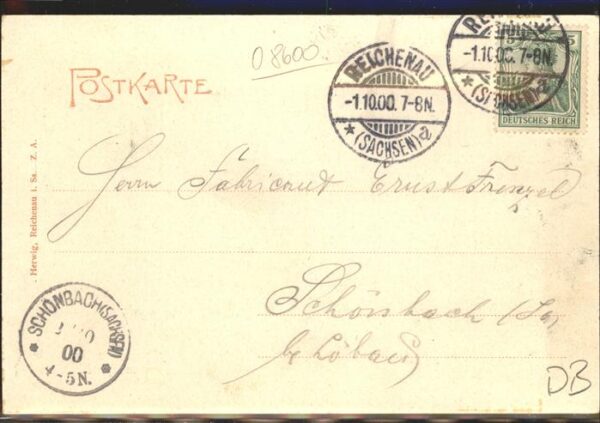 08600
POSTKARTE
REICHENAU
-1.10.00. 7-8N.
* (SACHSEN) a
-1.10.00. 7-8N.
DEUTSCHES REICH
Herrn Fabricant Ernst Frenzel
Schönbach
b/Löbau
Herwig, Reichenau i. Sa. Z. A.
SCHÖNBACH
00
4-5N.
DB